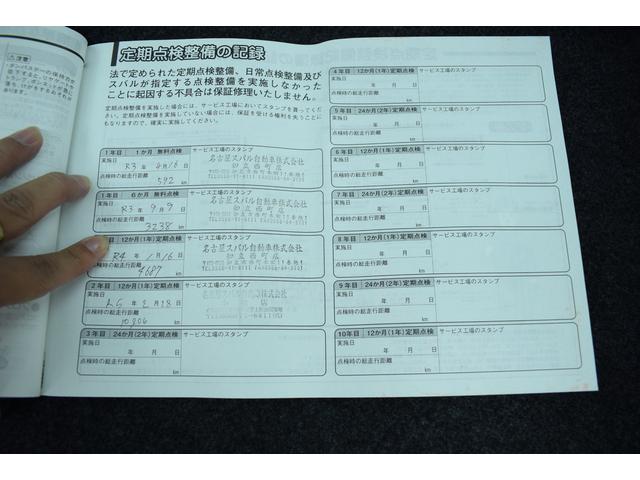 注意
定期点検整備の記録
法で定められた定期点検整備、日常点検整備及び
スバルが指定する点検整備を実施しなかった
ことに起因する不具合は保証修理いたしません。
定期点検整備を実施した場合には、サービス工場においてスタンプを買ってくだ
さい。定期点検整備を実施していない場合には、保証を受ける権利を失うことに
もなりますので、確実に実施してください。
1年目 1か月 無料点検 サービス工場のスタンプ
実施日
R3年4月16日
点検時の総走行距離
592 km
名古屋スバル自動車株式会社
知立西町店
1年目 6か月 無料点検 サービス工場のスタンプ
実施日
R3年9月9日
点検時の総走行距離
3238 km
名古屋スバル自動車株式会社
知立西町店
12か月(1年)定期点検 サービス工場のスタンプ
R4年1月16日
点検時の総走行距離
4687 km
名古屋スバル自動車株式会社
知立西町店
2年目 12か月(1年)定期点検 サービス工場のスタンプ
実施日
年 月 日
点検時の総走行距離
10206 km
3年目 24か月(2年)定期点検 サービス工場のスタンプ
実施日
年 月 日
点検時の総走行距離
km
4年目 12か月(1年)定期点検 サービス工場のスタンプ
実施日
年 月 日
点検時の総走行距離
km
5年目 24か月(2年)定期点検 サービス工場のスタンプ
実施日
年 月 日
点検時の総走行距離
km
6年目 12か月(1年)定期点検 サービス工場のスタンプ
実施日
年 月 日
点検時の総走行距離
km
7年目 24か月(2年)定期点検 サービス工場のスタンプ
実施日
年 月 日
点検時の総走行距離
km
8年目 12か月(1年)定期点検 サービス工場のスタンプ
実施日
年 月 日
点検時の総走行距離
km
9年目 24か月(2年)定期点検 サービス工場のスタンプ
実施日
年 月 日
点検時の総走行距離
km
10年目 12か月(1年)定期点検 サービス工場のスタンプ
実施日
年 月 日
点検時の総走行距離
km